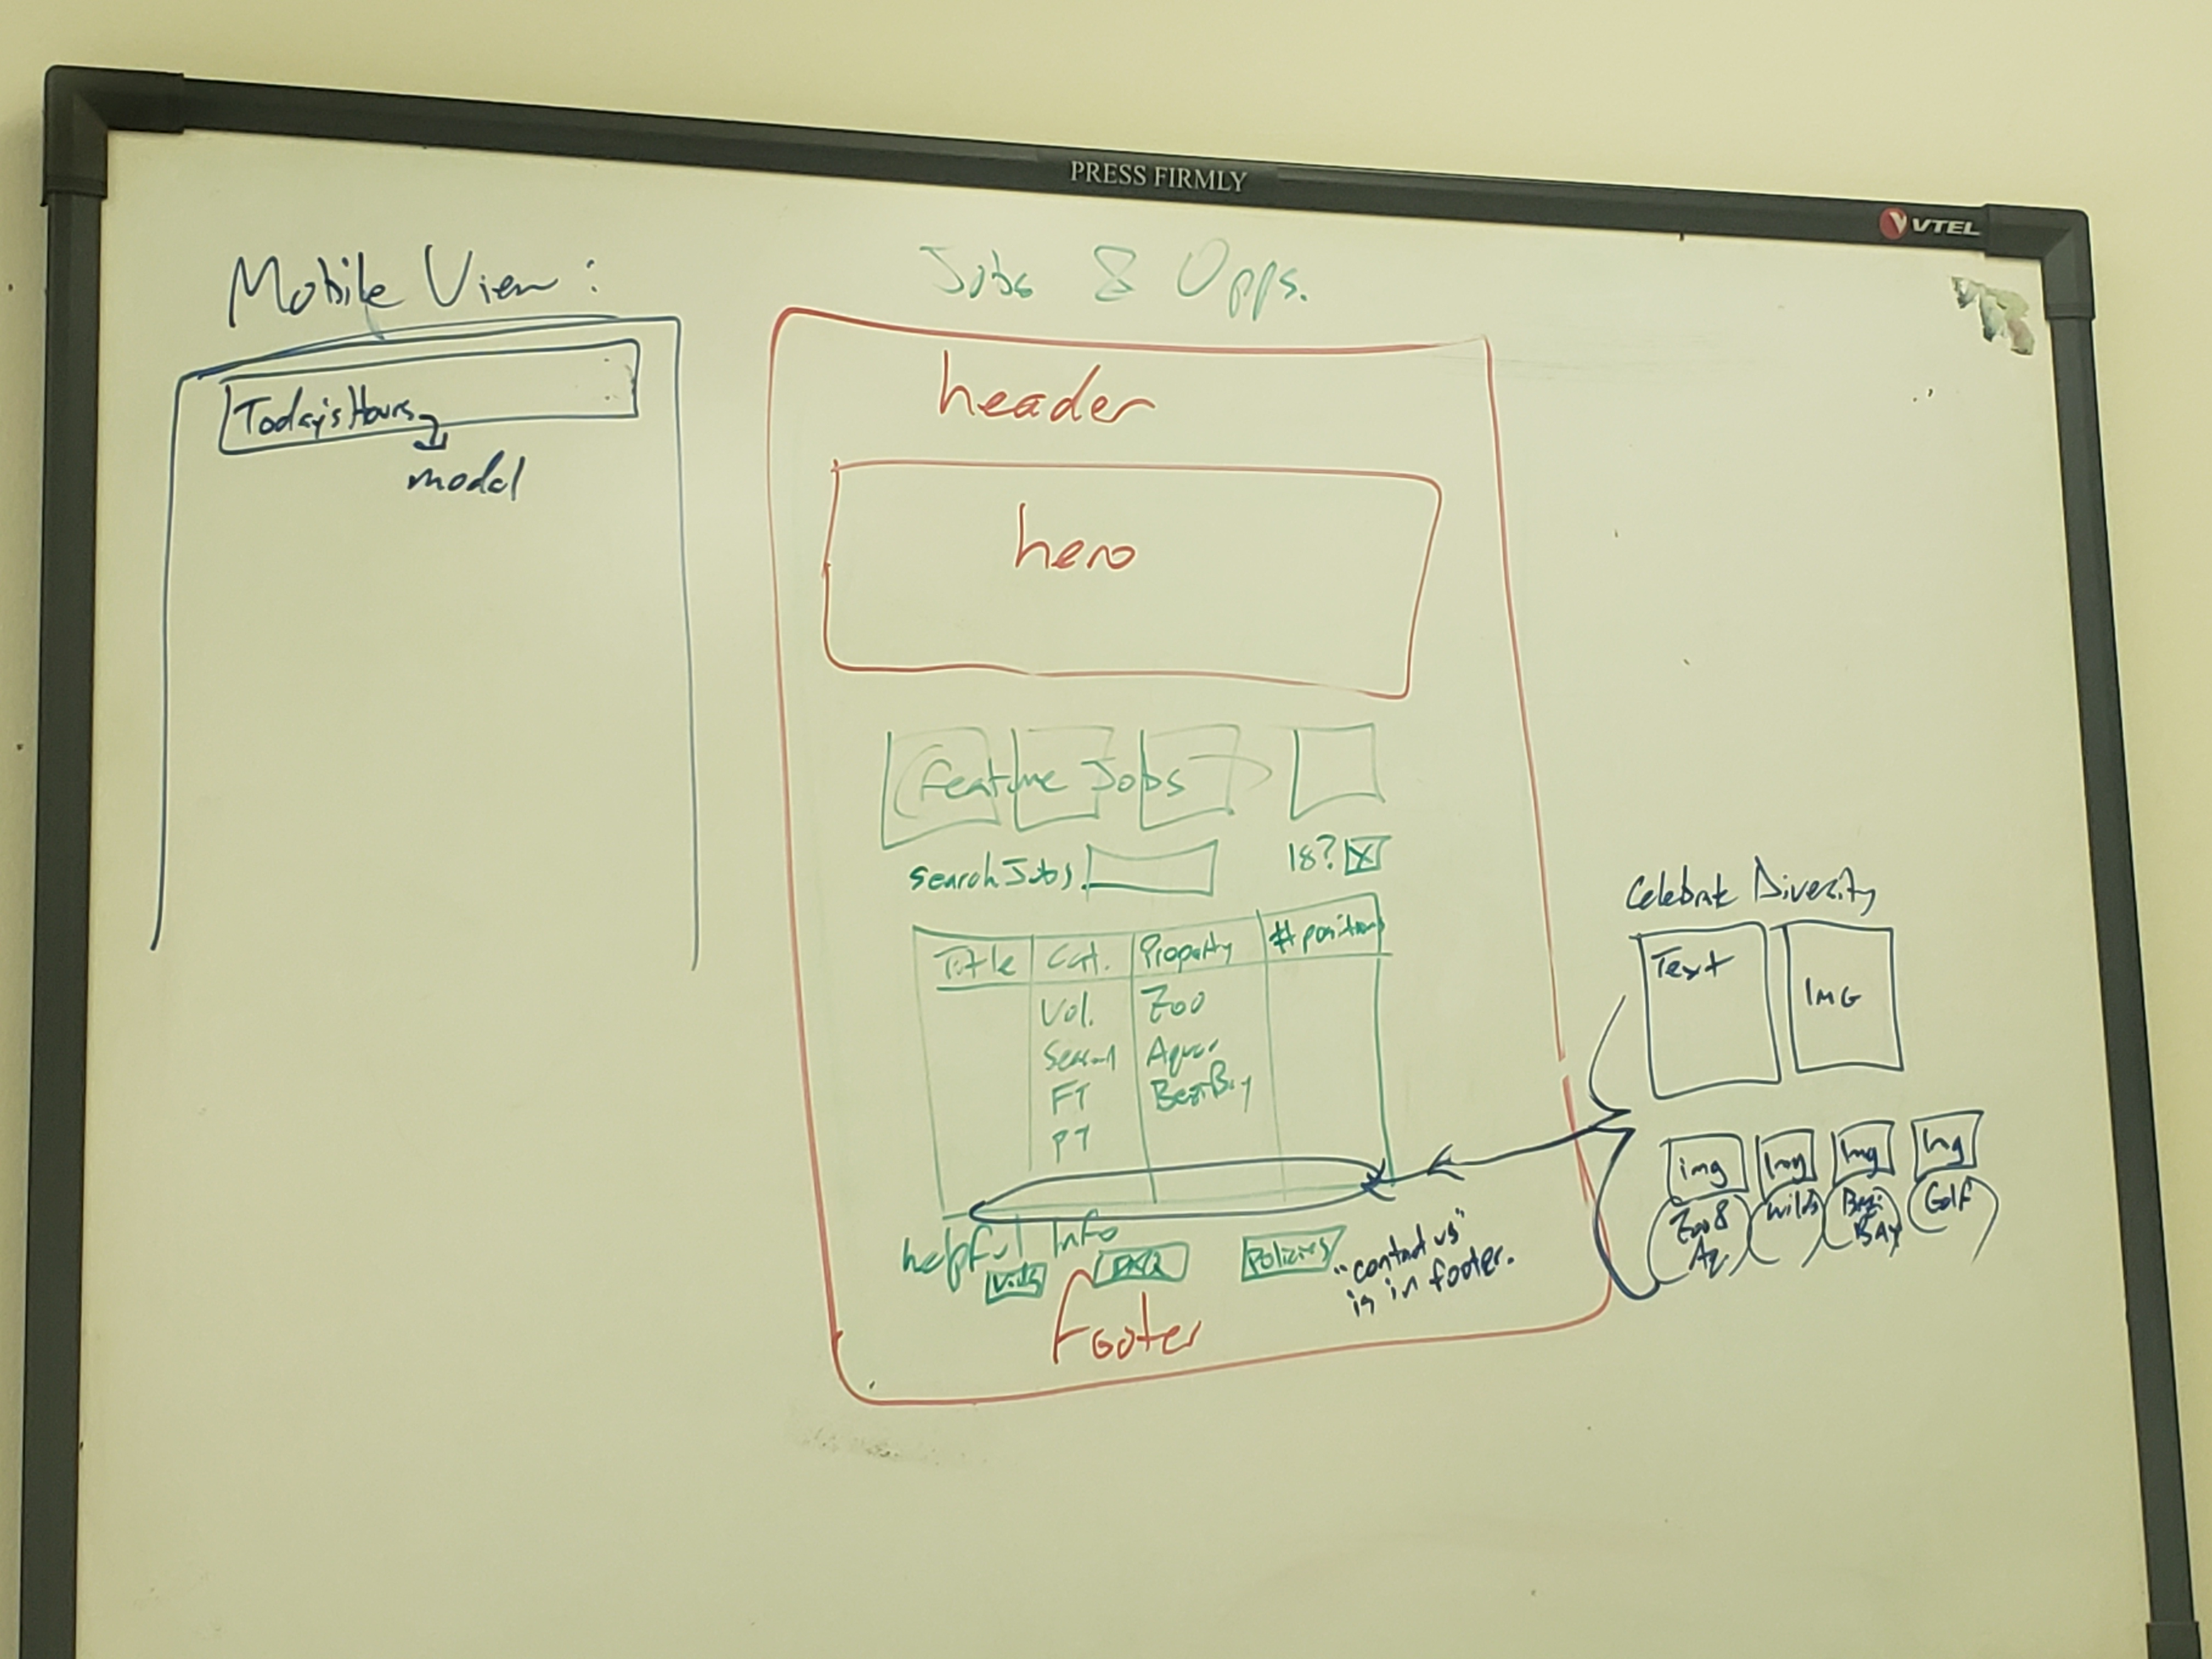 PRESS FIRMLY
VTEL
Mobile View:
Today's Hours
modal
Jobs & Opps.
header
hero
Feature Jobs
Search Jobs
18?
Title Cat. Property # positions
Vol. Zoo
Season Aquar
FT Bezi Bay
PT
helpful Info
FAQ Policies
"contact us"
is in footer.
Footer
Celebrate Diversity
Text
IMG
img Img Img Img
Zoo & Aq Wilds Bezi BAy Golf